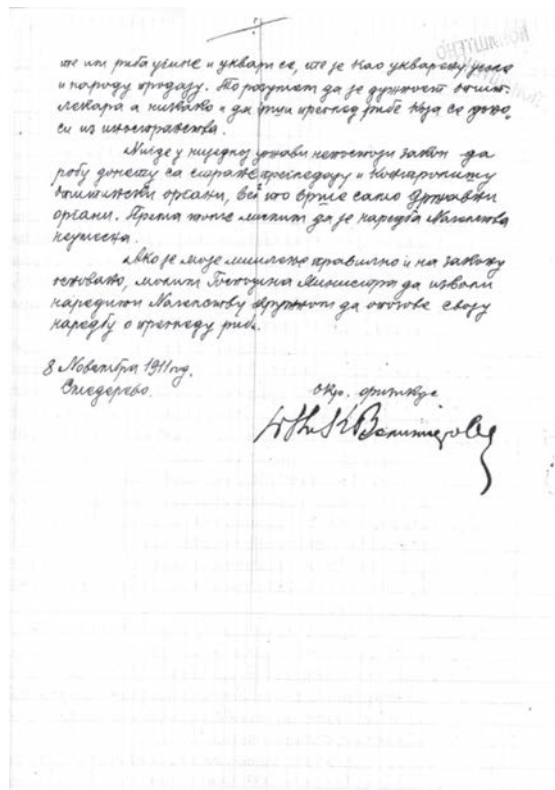 те им риба угине и уквари се, те је као укварену
и народу продају. То разумем да је дужност општ.
лекара а никако и да врши преглед рибе која се доно-
си из иностранства.
Нигде у ниједној држави непостоји закон да
робу донету са стране прегледају и контролишу
општински органи, већ то врше само државни
органи. Према томе мислим да је наредба Началства
неумесна.
Ако је моје мишљење правилно и на закону
основано, молим Господина Министра да изволи
наредити Началству окружном да опозове своју
наредбу о прегледу рибе.
8 Новембра 1911 год.
Смедерево.
окр. физикус